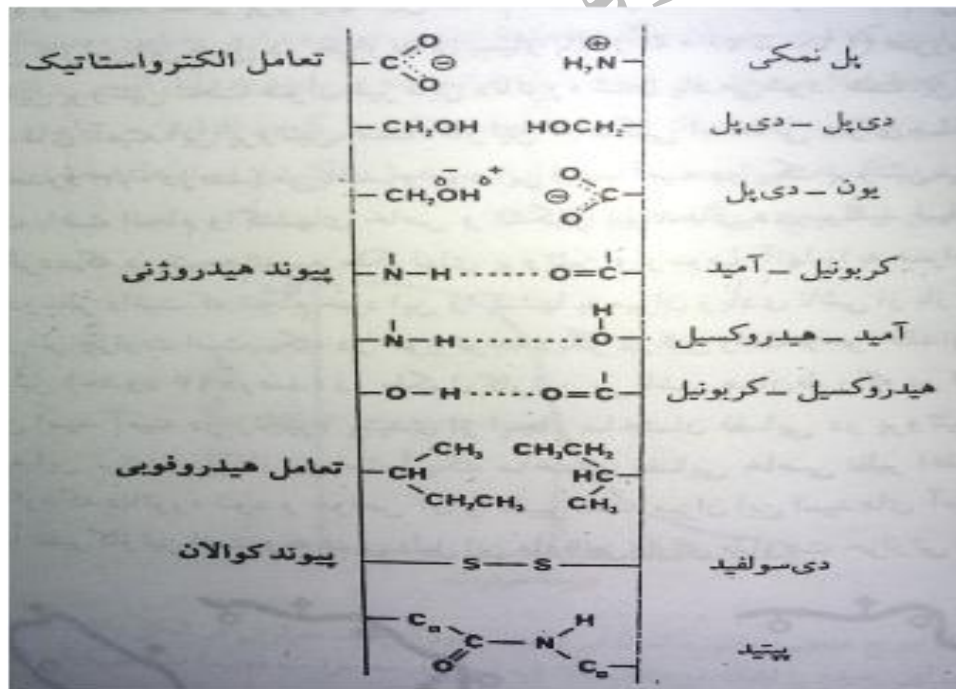 تعامل الکترواستاتیک C O O ⊖ ⊕ H₃N پل نمکی
CH₂OH HOCH₂ دی‌پل – دی‌پل
CH₂OH σ⁻ σ⁺ ⊖ O O C یون – دی‌پل
پیوند هیدروژنی N–H······O=C کربونیل – آمید
N–H·········O H آمید – هیدروکسیل
O–H······O=C هیدروکسیل – کربونیل
تعامل هیدروفوبی CH CH₃ CH₂CH₃ CH₃CH₂ HC CH₃
پیوند کوالان S – S دی‌سولفید
Cα C O N H Cα پپتید